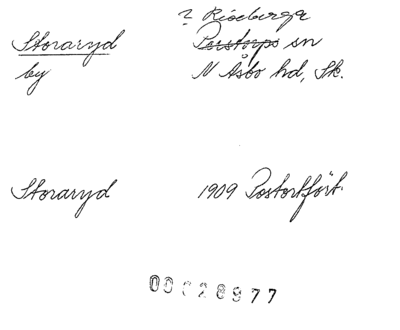 ? Riseberga
Storaryd Perstorps sn
by N Åsbo hd, Sk.
Storaryd 1909 Postortsfört.
00028977